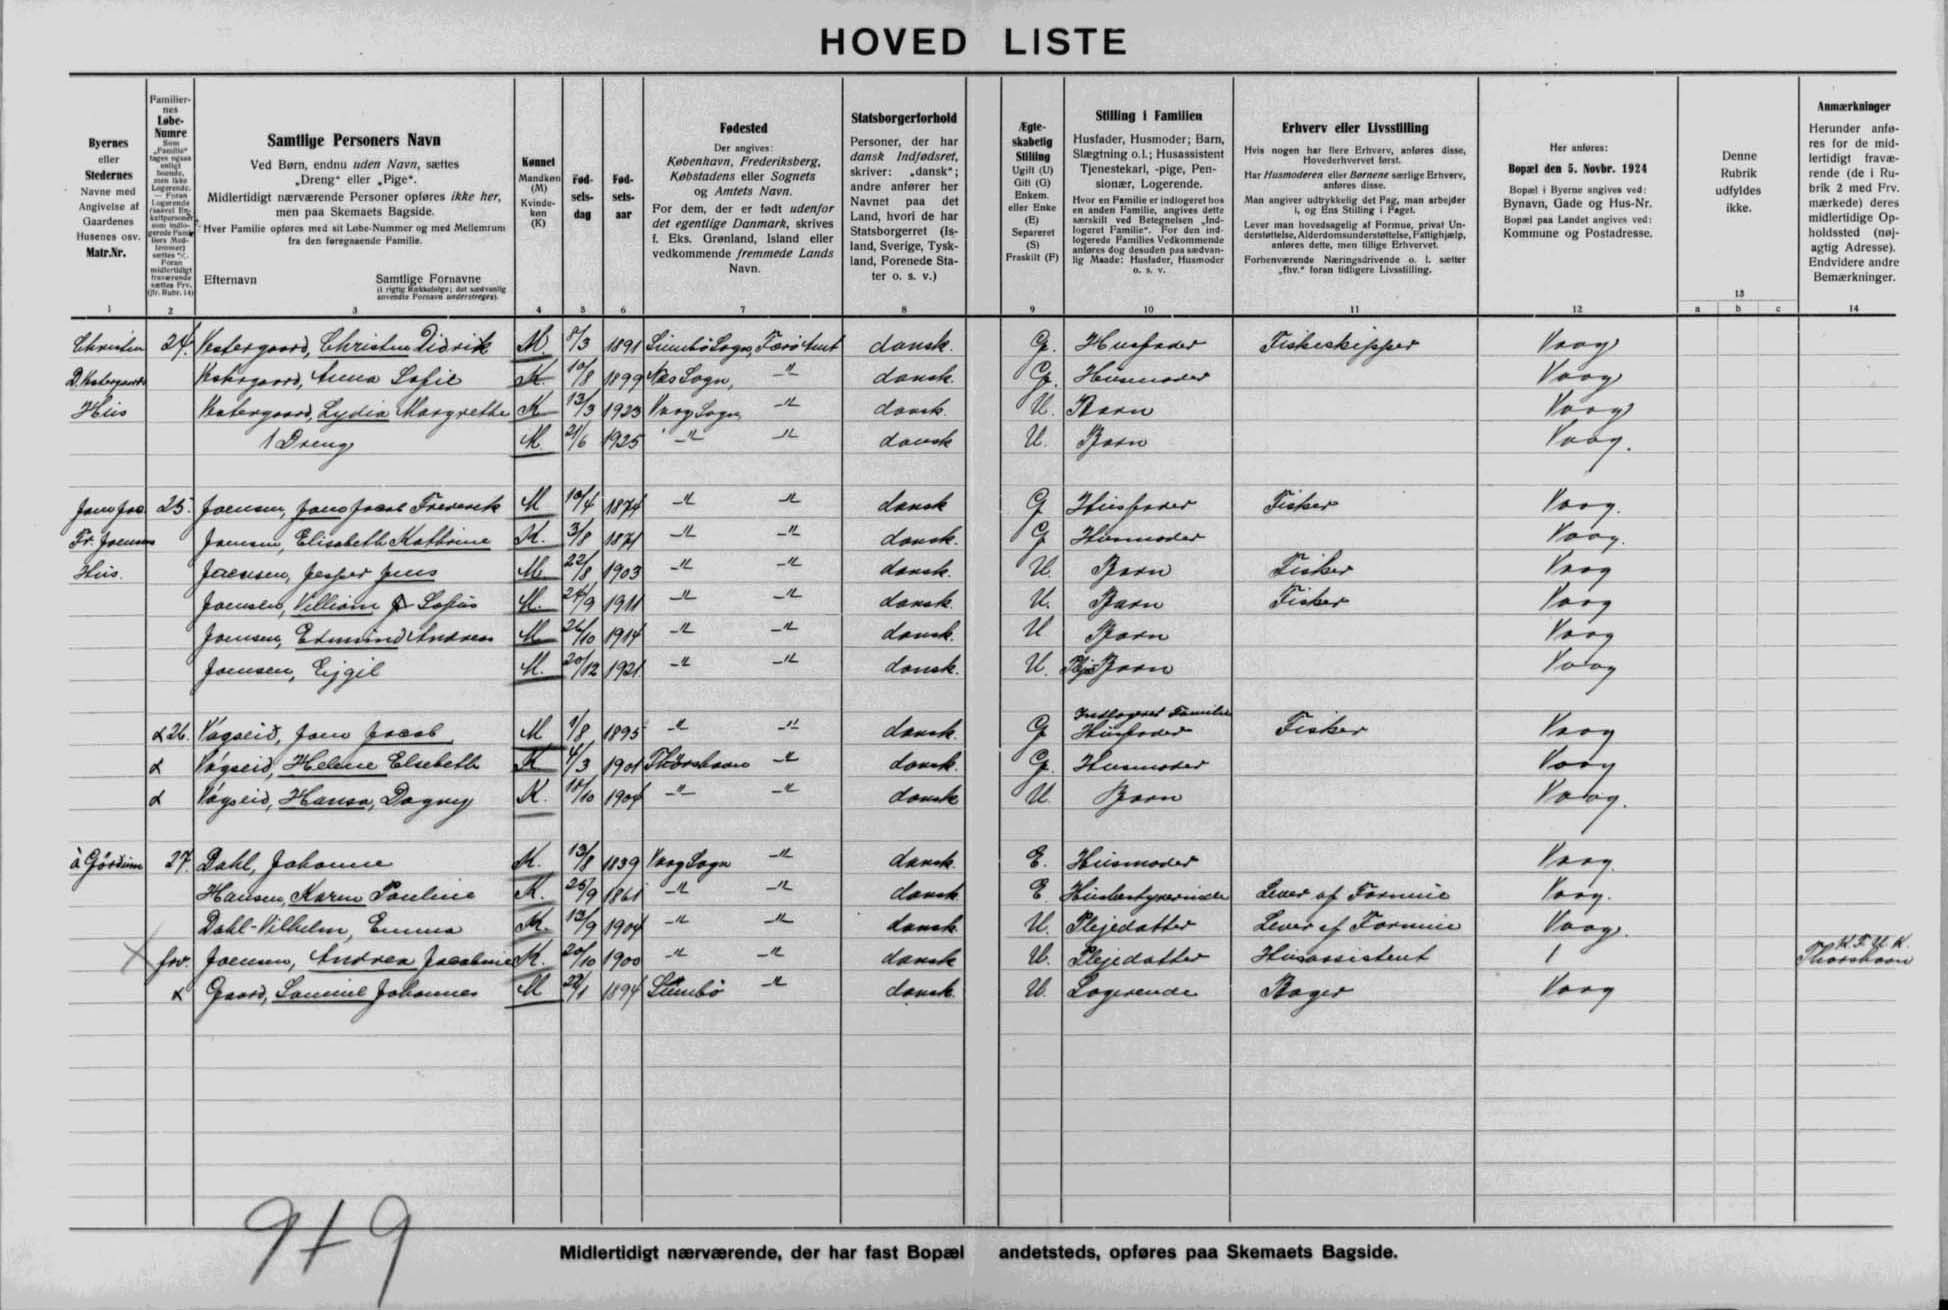 HOVED LISTE
Byernes
eller
Stedernes
Navne med
Angivelse af
Gaardenes
Husenes osv.
Matr.Nr.
Familier-
nes
Løbe-
Numre
Som
„Familie“
tages ogsaa
enligt
boende,
men ikke
Logerende.
— Foran
Logerende
(saavel En-
keltpersoner
som indlo-
gerede Fami-
liers Med-
lemmer)
sættes
Foran
midlertidigt
fraværende
sættes Frv.
(jfr. Rubr. 14)
Samtlige Personers Navn
Ved Børn, endnu uden Navn, sættes
„Dreng“ eller „Pige“.
Midlertidigt nærværende Personer opføres ikke her,
men paa Skemaets Bagside.
Hver Familie opføres med sit Løbe-Nummer og med Mellemrum
fra den foregaaende Familie.
Efternavn Samtlige Fornavne
(i rigtig Rækkefølge; det sædvanlig
anvendte Fornavn understreges).
Kønnet
Mandkøn
(M)
Kvinde-
køn
(K)
Fød-
sels-
dag
Fød-
sels-
aar
Fødested
Der angives:
København, Frederiksberg,
Købstadens eller Sognets
og Amtets Navn.
For dem, der er født udenfor
det egentlige Danmark, skrives
f. Eks. Grønland, Island eller
vedkommende fremmede Lands
Navn.
Statsborgerforhold
Personer, der har
dansk Indfødsret,
skriver: „dansk“;
andre anfører her
Navnet paa det
Land, hvori de har
Statsborgerret (Is-
land, Sverige, Tysk-
land, Forenede Sta-
ter o. s. v.)
Ægte-
skabelig
Stilling
Ugift (U)
Gift (G)
Enkem.
eller Enke
(E)
Separeret
(S)
Fraskilt (F)
Stilling i Familien
Husfader, Husmoder; Barn,
Slægtning o.l.; Husassistent
Tjenestekarl, -pige, Pen-
sionær, Logerende.
Hvor en Familie er indlogeret hos
en anden Familie, angives dette
særskilt ved Betegnelsen „Ind-
logeret Familie“. For den ind-
logerede Families Vedkommende
anføres dog desuden paa sædvan-
lig Maade: Husfader, Husmoder
o. s. v.
Erhverv eller Livsstilling
Hvis nogen har flere Erhverv, anføres disse,
Hovederhvervet først.
Har Husmoderen eller Børnene særlige Erhverv,
anføres disse.
Man angiver udtrykkelig det Fag, man arbejder
i, og Ens Stilling i Faget.
Lever man hovedsagelig af Formue, privat Un-
derstøttelse, Alderdomsunderstøttelse, Fattighjælp,
anføres dette, men tillige Erhvervet.
Forhenværende Næringsdrivende o. l. sætter
„fhv.“ foran tidligere Livsstilling.
Her anføres:
Bopæl den 5. Novbr. 1924
Bopæl i Byerne angives ved:
Bynavn, Gade og Hus-Nr.
Bopæl paa Landet angives ved:
Kommune og Postadresse.
Denne
Rubrik
udfyldes
ikke.
Anmærkninger
Herunder anfø-
res for de mid-
lertidigt fravæ-
rende (de i Ru-
brik 2 med Frv.
mærkede) deres
midlertidige Op-
holdssted (nøj-
agtig Adresse).
Endvidere andre
Bemærkninger.
1 2 3 4 5 6 7 8 9 10 11 12 13 14
a b c
Christen 24. Vestergaard, Christen Didrik M. 8/3 1891 Sumbø Sogn, Færø Amt dansk. G. Husfader Fiskeskipper Vaag
D. Vestergaards Vestergaard, Anna Sofie K. 10/8 1899 Næs Sogn, -"- dansk. G. Husmoder Vaag
Hus Vestergaard, Lydia Margrethe K 13/3 1923 Vaag Sogn -"- dansk. U. Barn Vaag
1 Dreng M. 21/6 1925 -"- -"- dansk U. Barn Vaag.
Jens Jac. 25. Joensen, Jens Jacob Frederik M 10/4 1874 -"- -"- dansk G Husfader Fisker Vaag.
Fr. Joensens Joensen, Elisabeth Kathrine K. 3/8 1871 -"- -"- dansk. G Husmoder Vaag.
Hus. Joensen, Jesper Jens M 22/8 1903 -"- -"- dansk. U. Barn Fisker Vaag
Joensen, Villiam Sofus M. 24/9 1911 -"- -"- dansk. U. Barn Fisker Vaag
Joensen, Edmund Andreas M 26/10 1914 -"- -"- dansk. U Barn Vaag
Joensen, Ejgil M. 20/12 1921 -"- -"- dansk. U. Pleje Barn Vaag
Indlogeret Familie
26. Vágseid, Jens Jacob M 1/8 1895 -"- -"- dansk. G Husfader Fisker Vaag
Vágseid, Helene Elsebeth K 4/3 1901 Thorshavn -"- dansk. G. Husmoder Vaag
Vágseid, Hansa, Dagny K. 10/10 1904 -"- -"- dansk U. Barn Vaag.
27. Dahl, Johanne K. 13/8 1839 Vaag Sogn -"- dansk. E. Husmoder Vaag.
Hansen, Karen Pouline K. 25/9 1861 -"- -"- dansk. E Husbestyrerinde Lever af Formue Vaag.
Dahl-Vilhelm, Emma K. 13/9 1904 -"- -"- dansk U. Plejedatter Lever af Formue Vaag.
frv. Joensen, Andrea Jacobine K. 20/10 1900 -"- -"- dansk U. Plejedatter Husassistent K.F.U.K. Thorshavn
Gaard, Samuel Johannes M 22/1 1894 Sumbø -"- dansk. U. Logerende Bager Vaag
9+9
Midlertidigt nærværende, der har fast Bopæl andetsteds, opføres paa Skemaets Bagside.